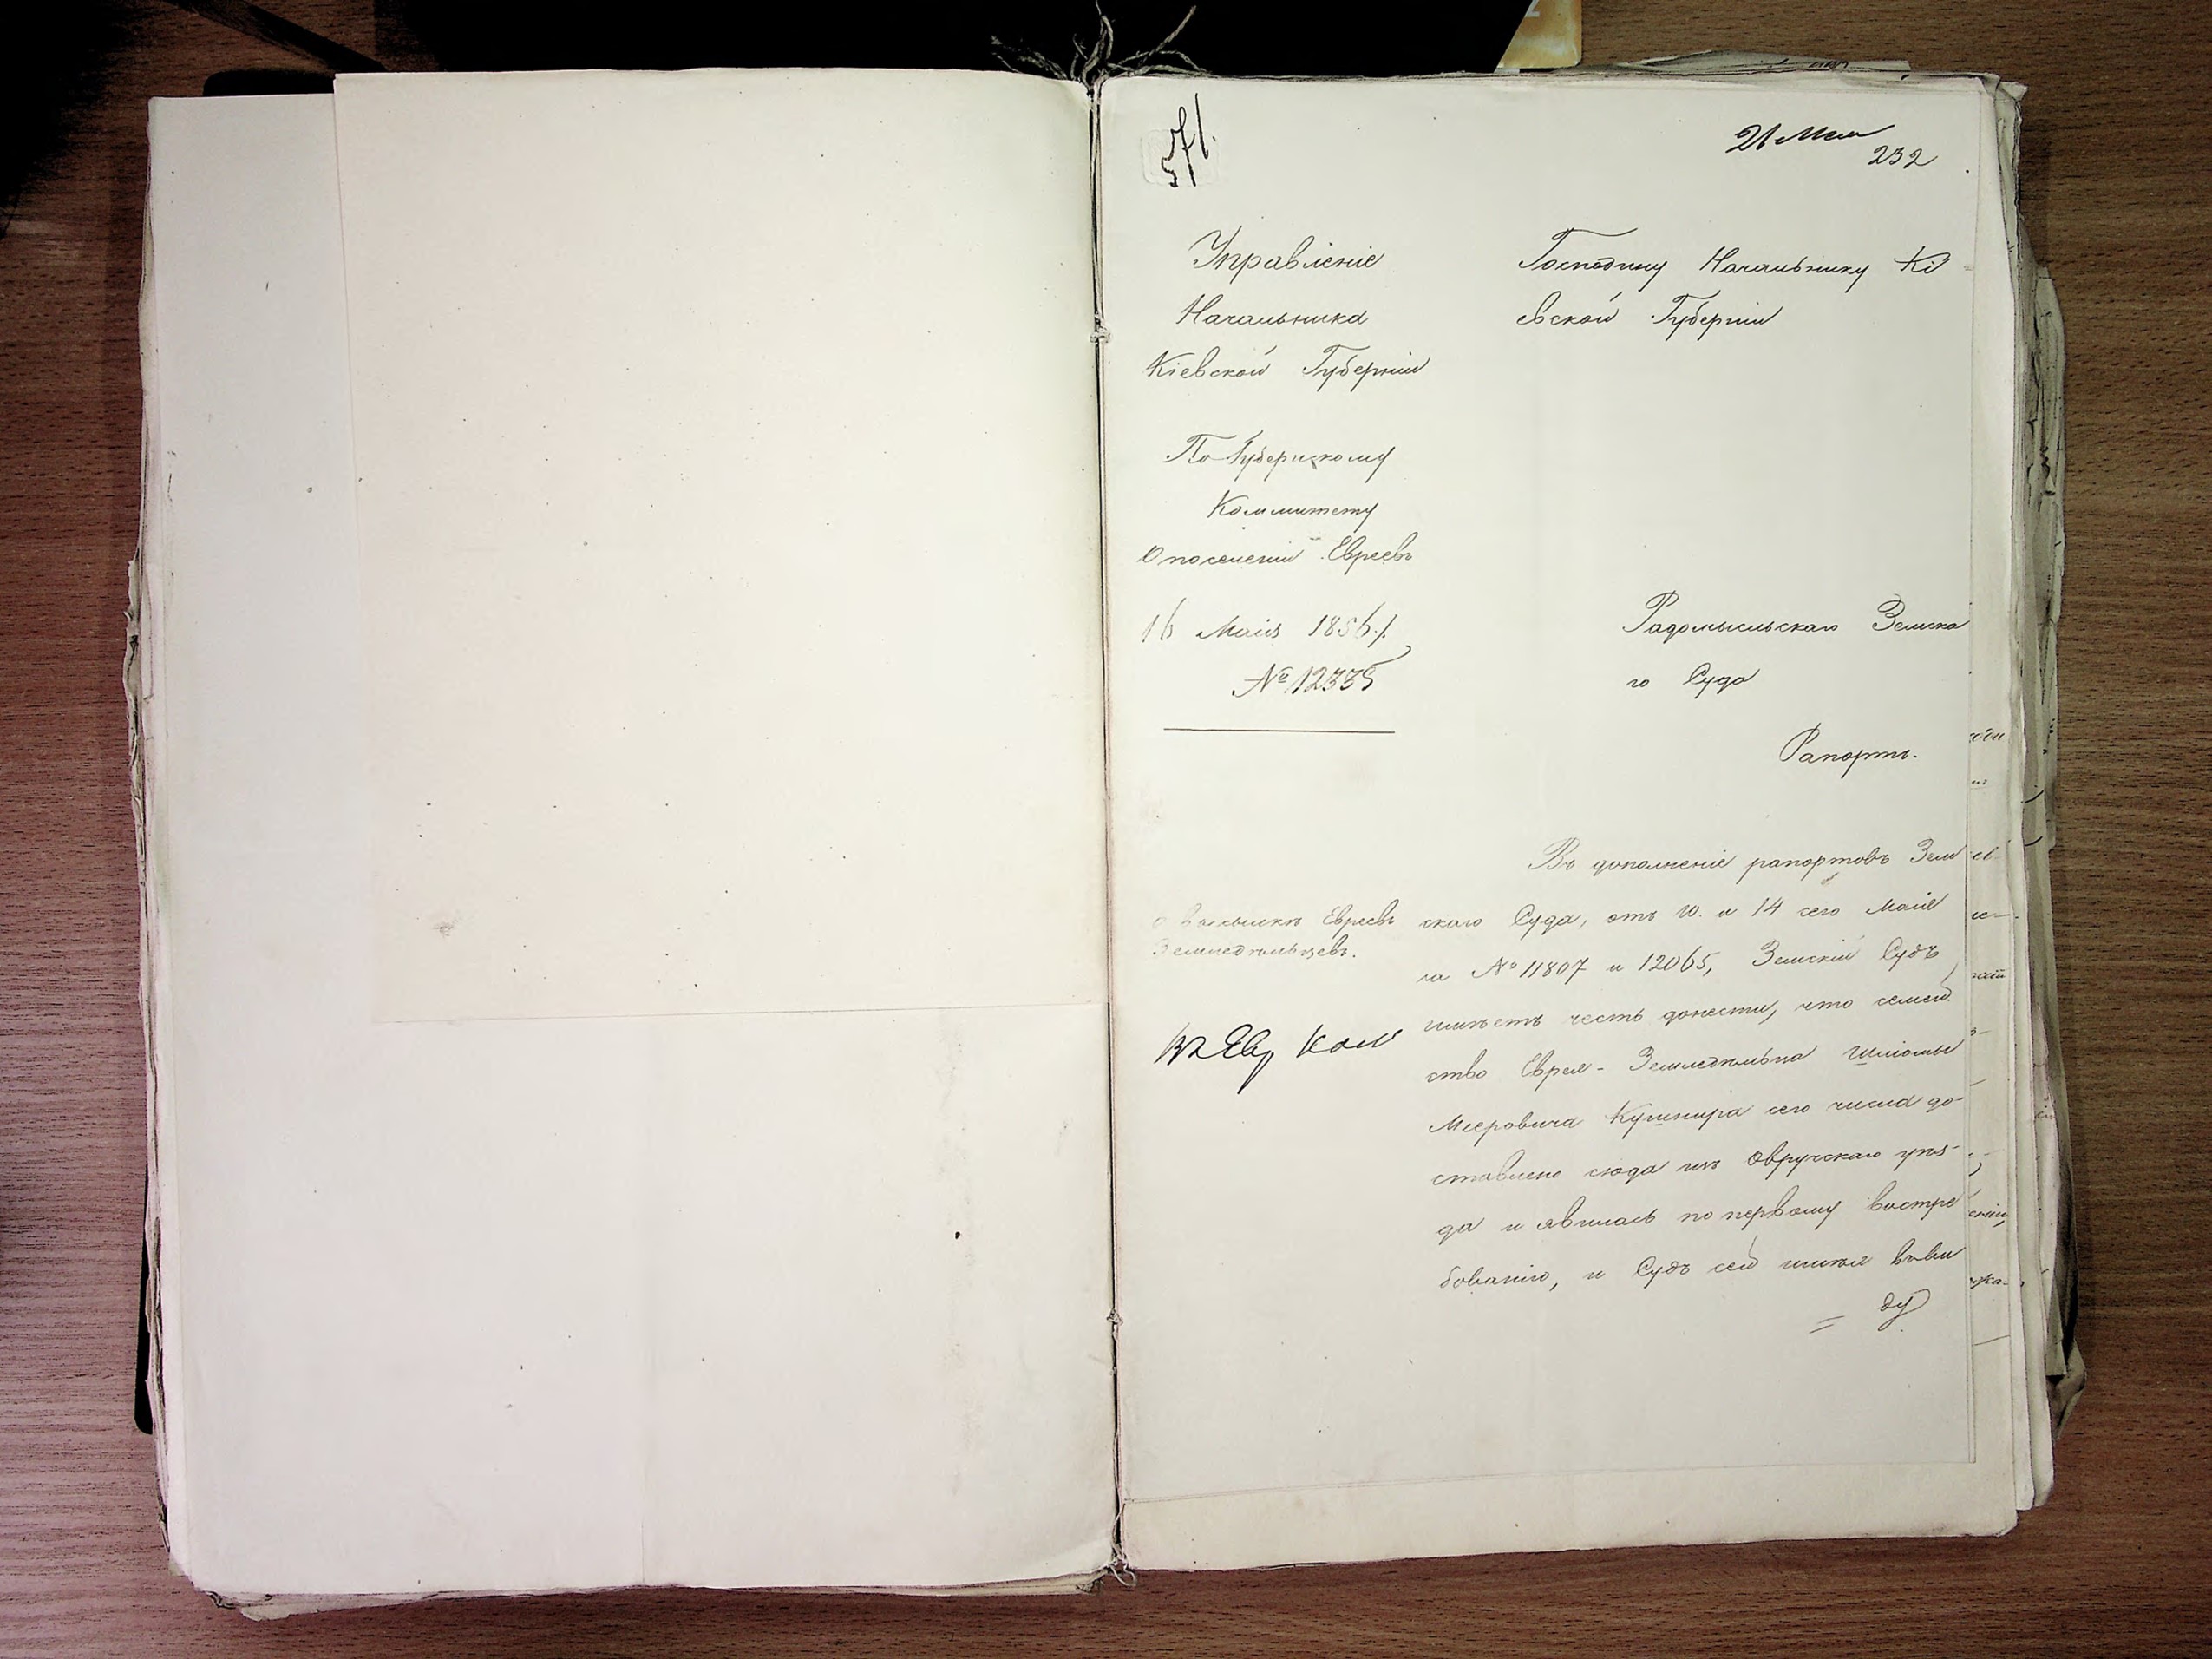 571.
21 Мая
232
Управленіе
Начальника
Кіевской Губерніи
По Губернскому
Коммитету
О поселеніи Евреевъ
16 Маія 1856 г.
№ 12335
Господину Начальнику Кі
евской Губерніи
Радомысльскаго Земска
го Суда
Рапортъ.
О высылкѣ Евреевъ
Земледѣльцевъ.
Въ Евр Ком
Въ дополненіе рапортовъ Зем
скаго Суда, отъ 10. и 14 сего Маія
за № 11807 и 12065, Земскій Судъ
имѣетъ честь донести, что семей
ство Еврея-Земледѣльца Шліомы
Мееровича Кушнира сего числа до-
ставлено сюда изъ Овручскаго уѣз-
да и явилась по первому востре
бованію, и Судъ сей имѣя ввви
= ду